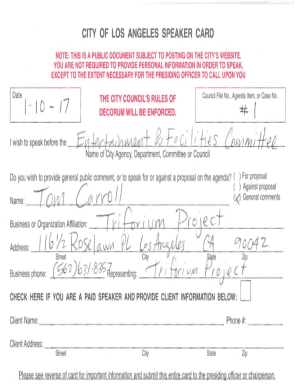 CITY OF LOS ANGELES SPEAKER CARD
NOTE: THIS IS A PUBLIC DOCUMENT SUBJECT TO POSTING ON THE CITY'S WEBSITE.
YOU ARE NOT REQUIRED TO PROVIDE PERSONAL INFORMATION IN ORDER TO SPEAK,
EXCEPT TO THE EXTENT NECESSARY FOR THE PRESIDING OFFICER TO CALL UPON YOU
Date
1-10-17
THE CITY COUNCIL'S RULES OF
DECORUM WILL BE ENFORCED.
Council File No., Agenda Item, or Case No.
#1
I wish to speak before the Entertainment & Facilities Committee
Name of City Agency, Department, Committee or Council
Do you wish to provide general public comment, or to speak for or against a proposal on the agenda? ( ) For proposal
( ) Against proposal
(✓) General comments
Name: Tom Carroll
Business or Organization Affiliation: Triforium Project
Address: 116 1/2 Roselawn PL Los Angeles CA 90042
Street City State Zip
Business phone: (562) 631-8357 Representing: Triforium Project
CHECK HERE IF YOU ARE A PAID SPEAKER AND PROVIDE CLIENT INFORMATION BELOW:
Client Name: Phone #:
Client Address:
Street City State Zip
Please see reverse of card for important information and submit this entire card to the presiding officer or chairperson.